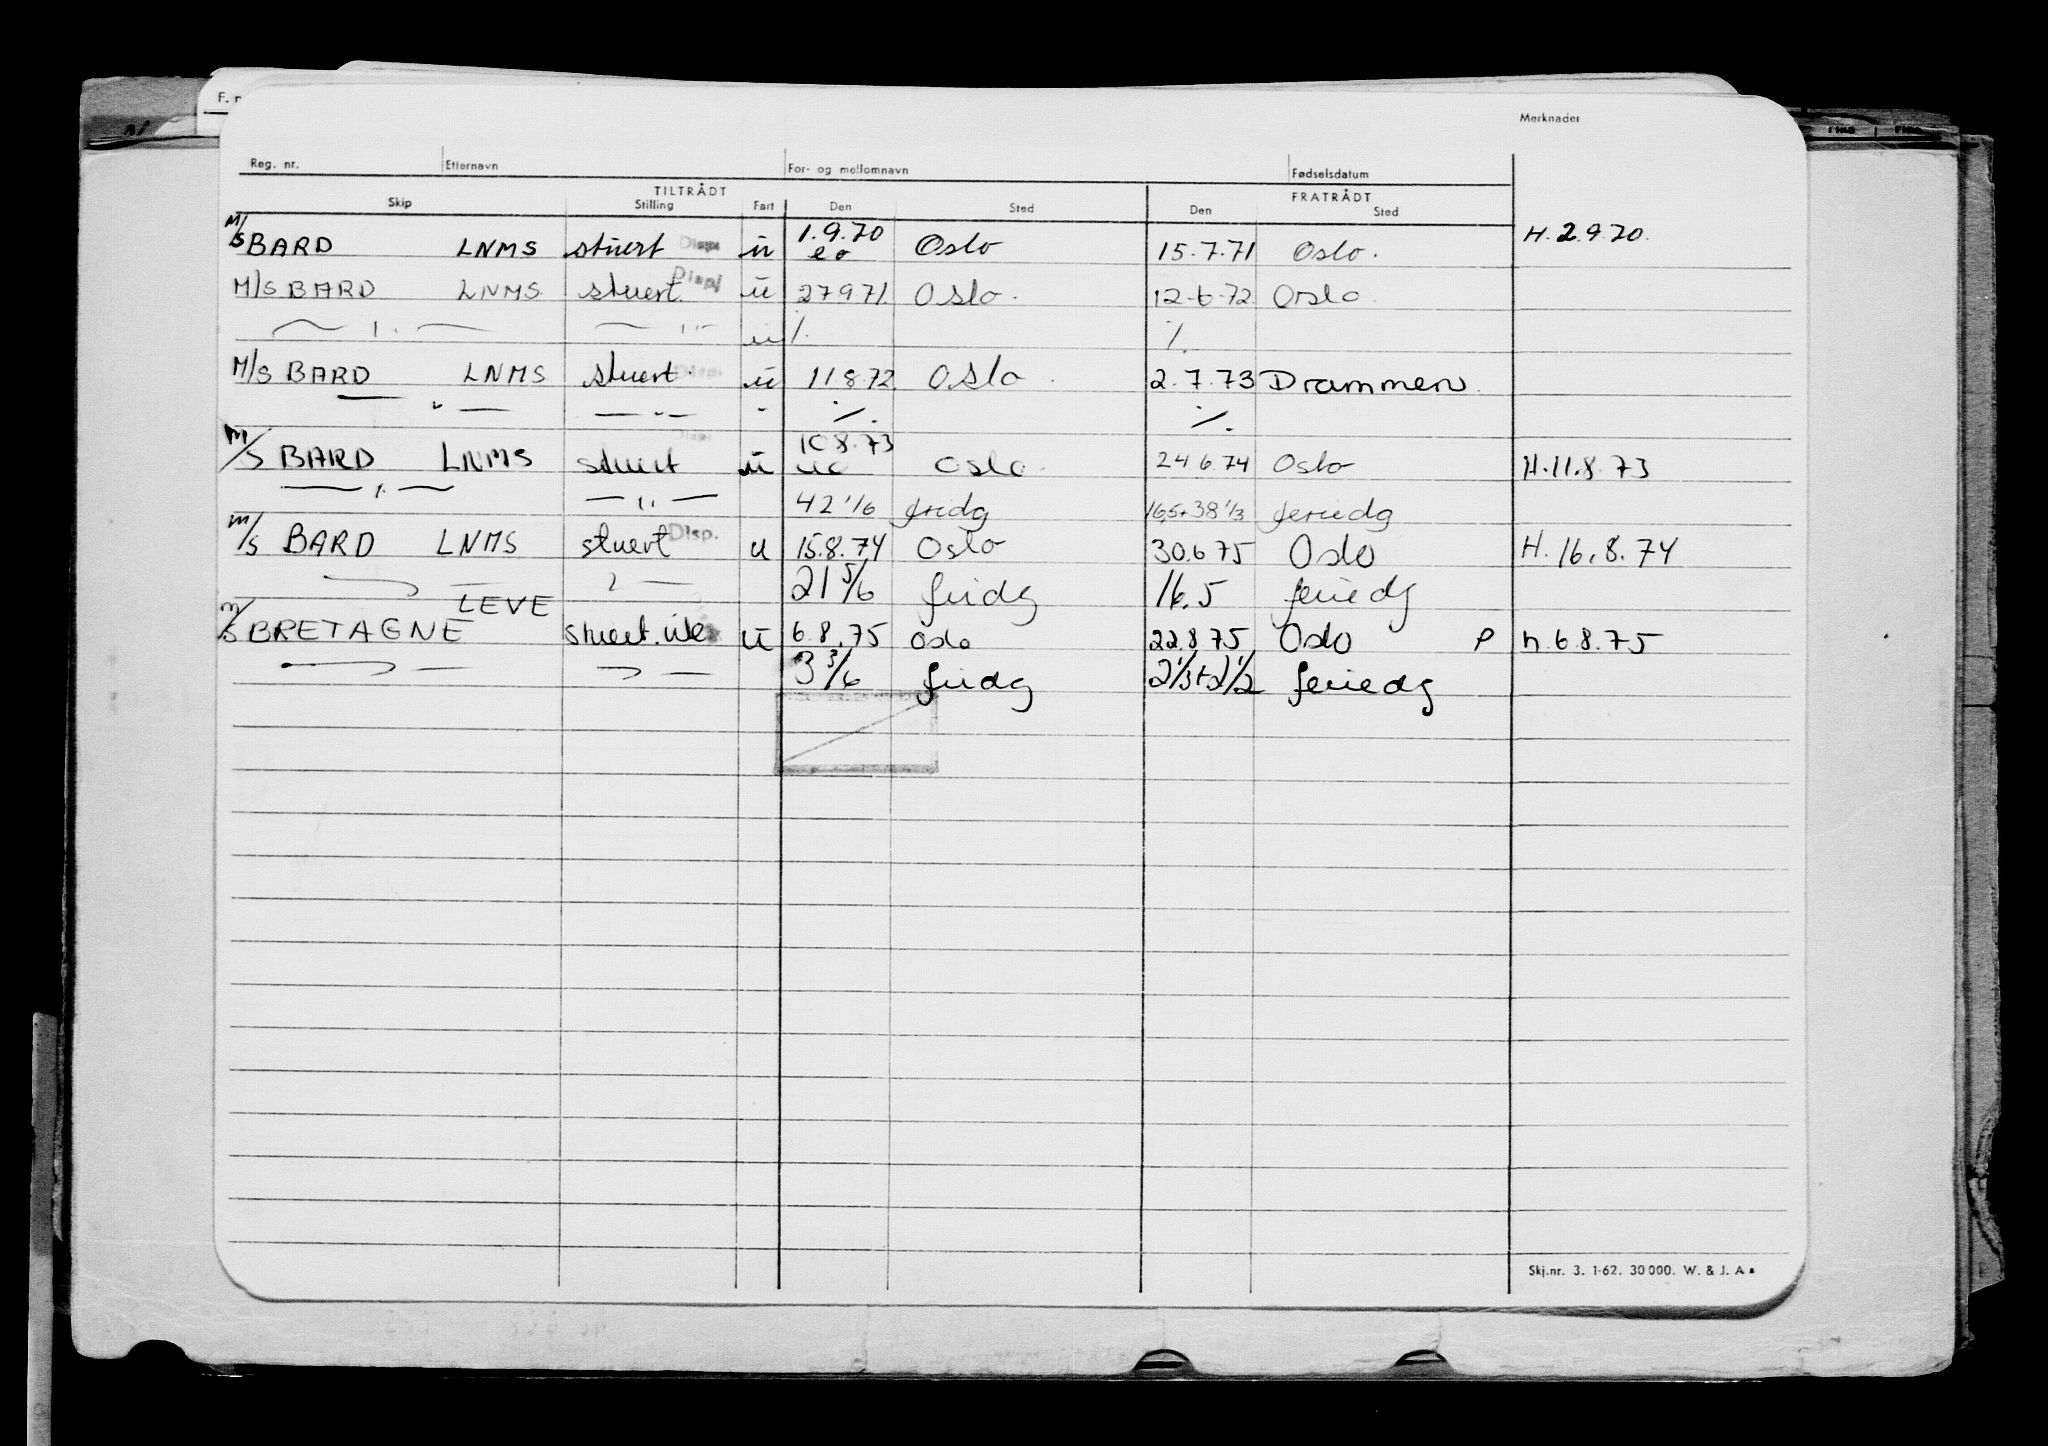 F. n
Merknader
Reg. nr. Etternavn For- og mellomnavn Fødselsdatum
TILTRÅDT FRATRÅDT
Skip Stilling Fart Den Sted Den Sted
M/S BARD LNMS stuert Disp. u 1.9.70 Oslo 15.7.71 Oslo. H. 2.9.70.
M/S BARD LNMS. stuert. Disp. u 27971. Oslo. 12-6-72 Oslo.
— " — — " — u ./. ./.
M/S BARD LNMS stuert. Disp. u 11.8.72. Oslo. 2.7.73 Drammen.
— " — — " — " ./. ./.
M/S BARD LNMS stuert Disp. u 10.8.73 Oslo. 24.6.74 Oslo H.11.8.73
— " — — " — 42 1/6 fridg 16,5+38 1/3 feriedg
M/S BARD LNMS stuert Disp. u 15.8.74 Oslo 30.6.75 Oslo H. 16.8.74
— " — — " — 21 5/6 fridg 16.5 feriedg
M/S BRETAGNE LEVE stuert. u 6.8.75 Oslo 22.8.75 Oslo P h.6.8.75
— " — — " — 3 3/6 fridg 2 1/3+2 1/2 feriedg
Skj.nr. 3. 1-62. 30 000. W. & J. A